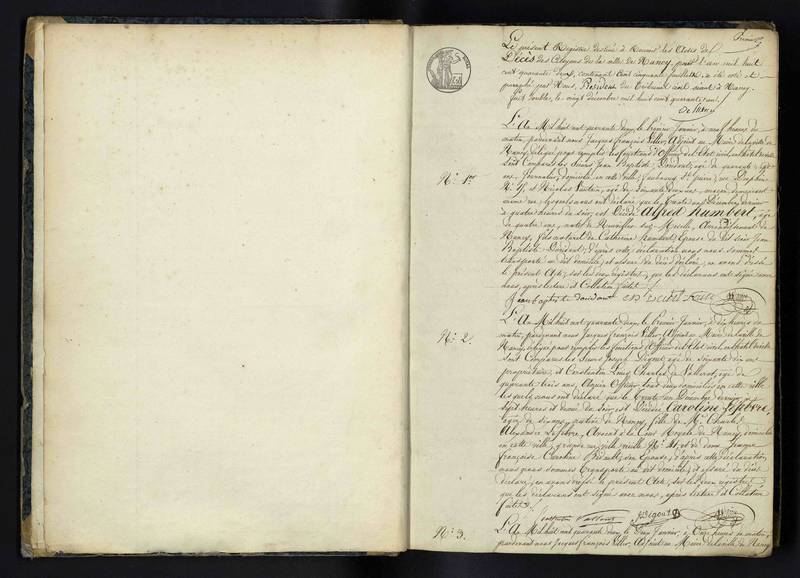 Premier
Le présent Registre destiné à recevoir les Actes de
Décès des Citoyens de la ville de Nancy, pour l'an mil huit
cent quarante deux, contenant cent cinquante feuillets, a été coté et
paraphé par Nous, Président du Tribunal civil séant à Nancy.
Fait double, le vingt décembre mil huit cent quarante un.
N.° 1.er
L'An Mil huit cent quarante deux, le Premier Janvier, à neuf heures du
matin, pardevant nous Jacques François Adjoint au Maire de la ville de
Nancy, délégué pour remplir les fonctions d'Officier de l'Etat civil,
sont Comparus les Sieurs Jean Baptiste agé de quarante
ans, Journalier, domicilié en cette ville, faubourg St. Pierre, rue
et Nicolas agé de soixante ans, maçon, demeurant
même rue, lesquels nous ont déclaré que le trente un Décembre dernier
à quatre heures du soir, est Décédé Alfred humbert, agé
de quatre ans, natif de sur Moselle, Arrondissement de
Nancy, fils naturel de Catherine humbert, Epouse du dit sieur Jean
Baptiste d'après cette déclaration nous nous sommes
transporté au dit domicile, et assuré du décès déclaré, en avons dressé
le présent Acte, sur les deux registres, que les déclarants ont signé avec
nous, après lecture et Collation faite.
N.° 2.
L'An Mil huit cent quarante deux, le Premier Janvier, à dix heures du
matin, pardevant nous Jacques François Adjoint au Maire de la ville de
Nancy, délégué pour remplir les fonctions d'Officier de l'Etat civil,
sont Comparus les Sieurs Joseph agé de soixante dix ans
propriétaire, et Constantin Louis Charles de agé de
quarante trois ans, Ancien Officier, tous deux domiciliés en cette ville
lesquels nous ont déclaré que le trente un Décembre dernier à
sept heures et demie du soir, est Décédée Caroline Lefebvre,
agée de six ans, native de Nancy, fille de Mr. Charles
Alexandre Lefebvre, Avocat à la Cour Royale de Nancy, domicilié
en cette ville, grande rue, ville vieille et de dame Jeanne
françoise Caroline son Epouse, d'après cette déclaration,
nous nous sommes transporté au dit domicile, et assuré du décès
déclaré, en avons dressé le présent Acte, sur les deux registres
que les déclarants ont signé avec nous, après lecture et Collation
faite.
N.° 3.
L'An Mil huit cent quarante deux, le Deux Janvier, à Onze heures du matin,
pardevant nous Jacques François Adjoint au Maire de la ville de Nancy